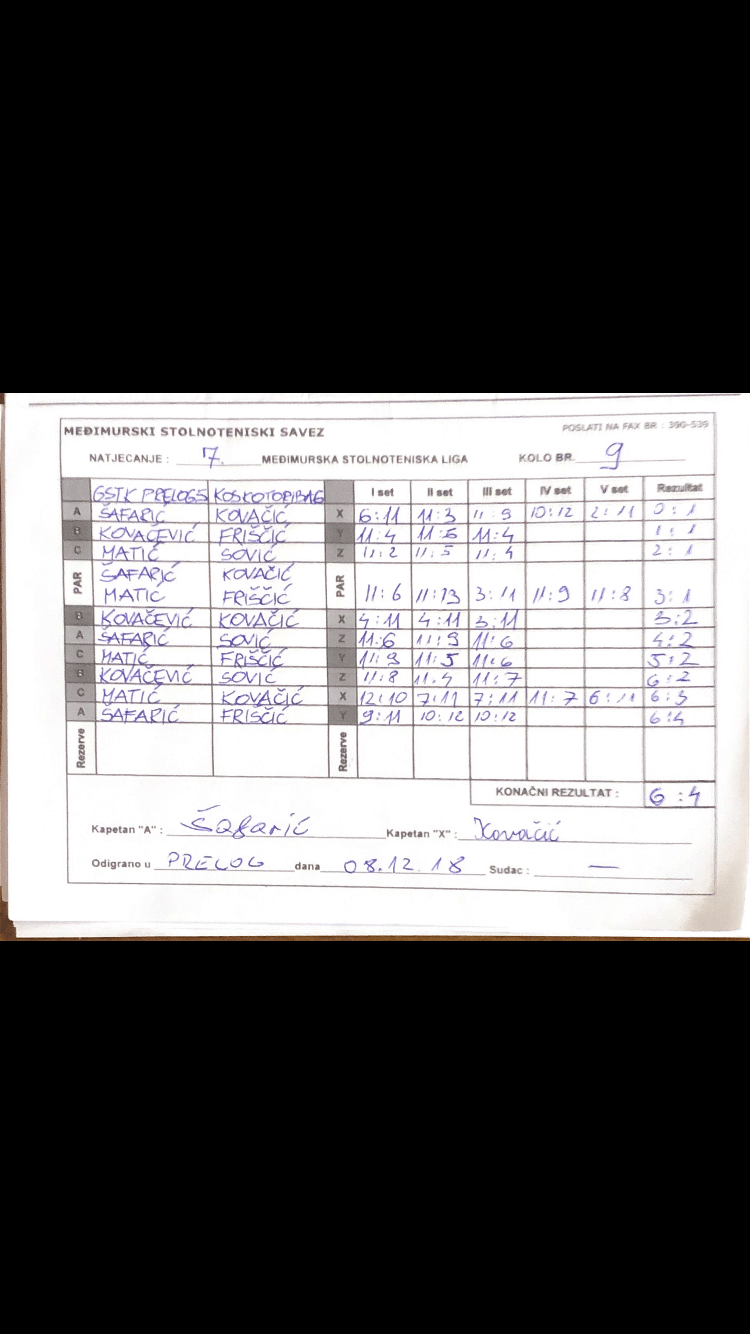 MEĐIMURSKI STOLNOTENISKI SAVEZ POSLATI NA FAX BR : 390-539
NATJECANJE : 7. MEĐIMURSKA STOLNOTENISKA LIGA KOLO BR. 9
GSTK PRELOG5 I set II set III set IV set V set Rezultat
A ŠAFARIĆ KOVAČIĆ X 6:11 11:3 11:9 10:12 2:11 0:1
B KOVAČEVIĆ FRIŠČIĆ Y 11:4 11:6 11:4 1:1
C MATIĆ SOVIĆ Z 11:2 11:5 11:4 2:1
PAR ŠAFARIĆ KOVAČIĆ PAR
MATIĆ FRIŠČIĆ 11:6 11:13 3:11 11:9 11:8 3:1
B KOVAČEVIĆ KOVAČIĆ X 4:11 4:11 3:11 3:2
A ŠAFARIĆ SOVIĆ Z 11:6 11:9 11:6 4:2
C MATIĆ FRIŠČIĆ Y 11:9 11:5 11:6 5:2
B KOVAČEVIĆ SOVIĆ Z 11:8 11:4 11:7 6:2
C MATIĆ KOVAČIĆ X 12:10 7:11 7:11 11:7 6:11 6:3
A ŠAFARIĆ FRIŠČIĆ Y 9:11 10:12 10:12 6:4
Rezerve Rezerve
KONAČNI REZULTAT : 6:4
Kapetan "A" : Šafarić Kapetan "X" : Kovačić
Odigrano u PRELOG dana 08.12.18 Sudac : —